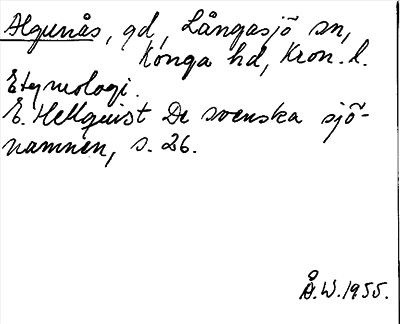 Algunås, gd, Långasjö sn,
Konga hd, Kron. l.
Etymologi.
E. Hellquist De svenska sjö-
namnen, s. 26.
Å.W. 1955.